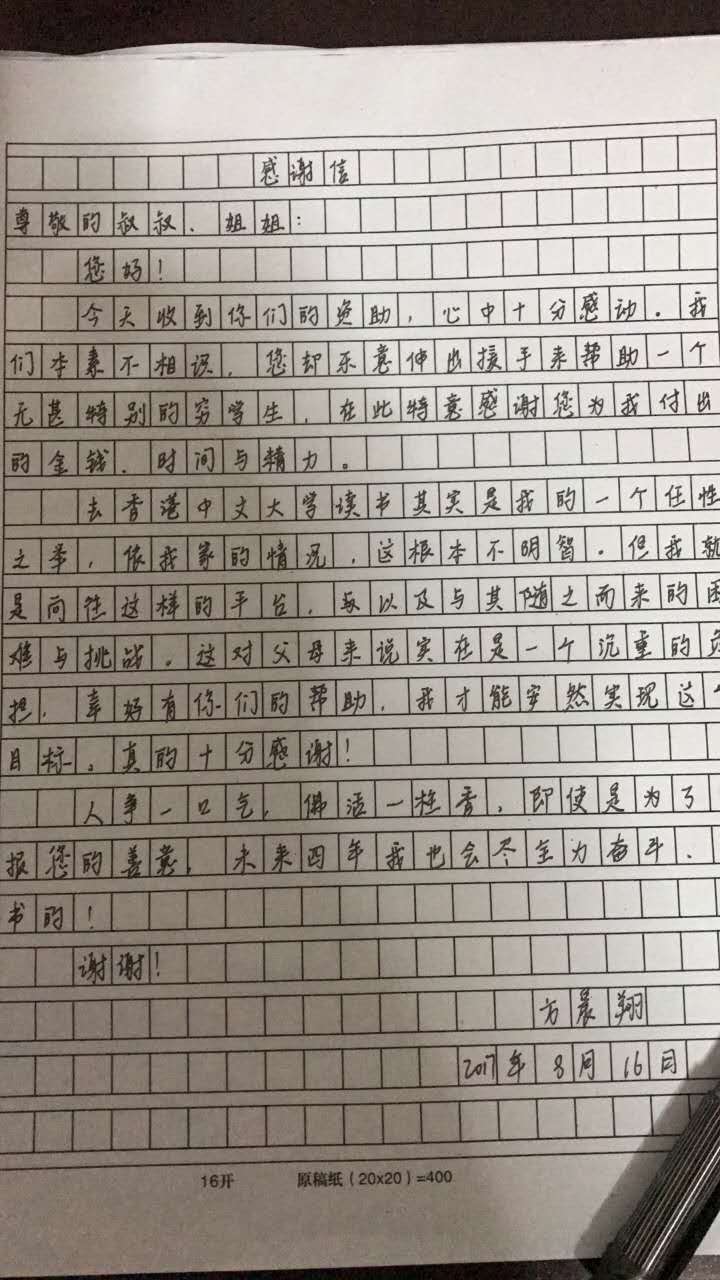 感谢信
尊敬的叔叔、姐姐：
您好！
今天收到你们的资助，心中十分感动。我
们本素不相识，您却乐意伸出援手来帮助一个
无甚特别的穷学生，在此特意感谢您为我付出
的金钱、时间与精力。
去香港中文大学读书其实是我的一个任性
之举，依我家的情况，这根本不明智。但我就
是向往这样的平台，以及与其随之而来的困
难与挑战。这对父母来说实在是一个沉重的负
担，幸好有你们的帮助，我才能安然实现这个
目标。真的十分感谢！
人争一口气，佛活一柱香，即使是为了
报您的善意，未来四年我也会尽全力奋斗、
书的！
谢谢！
方晨翔
2017年8月16日
16开 原稿纸（20x20）=400